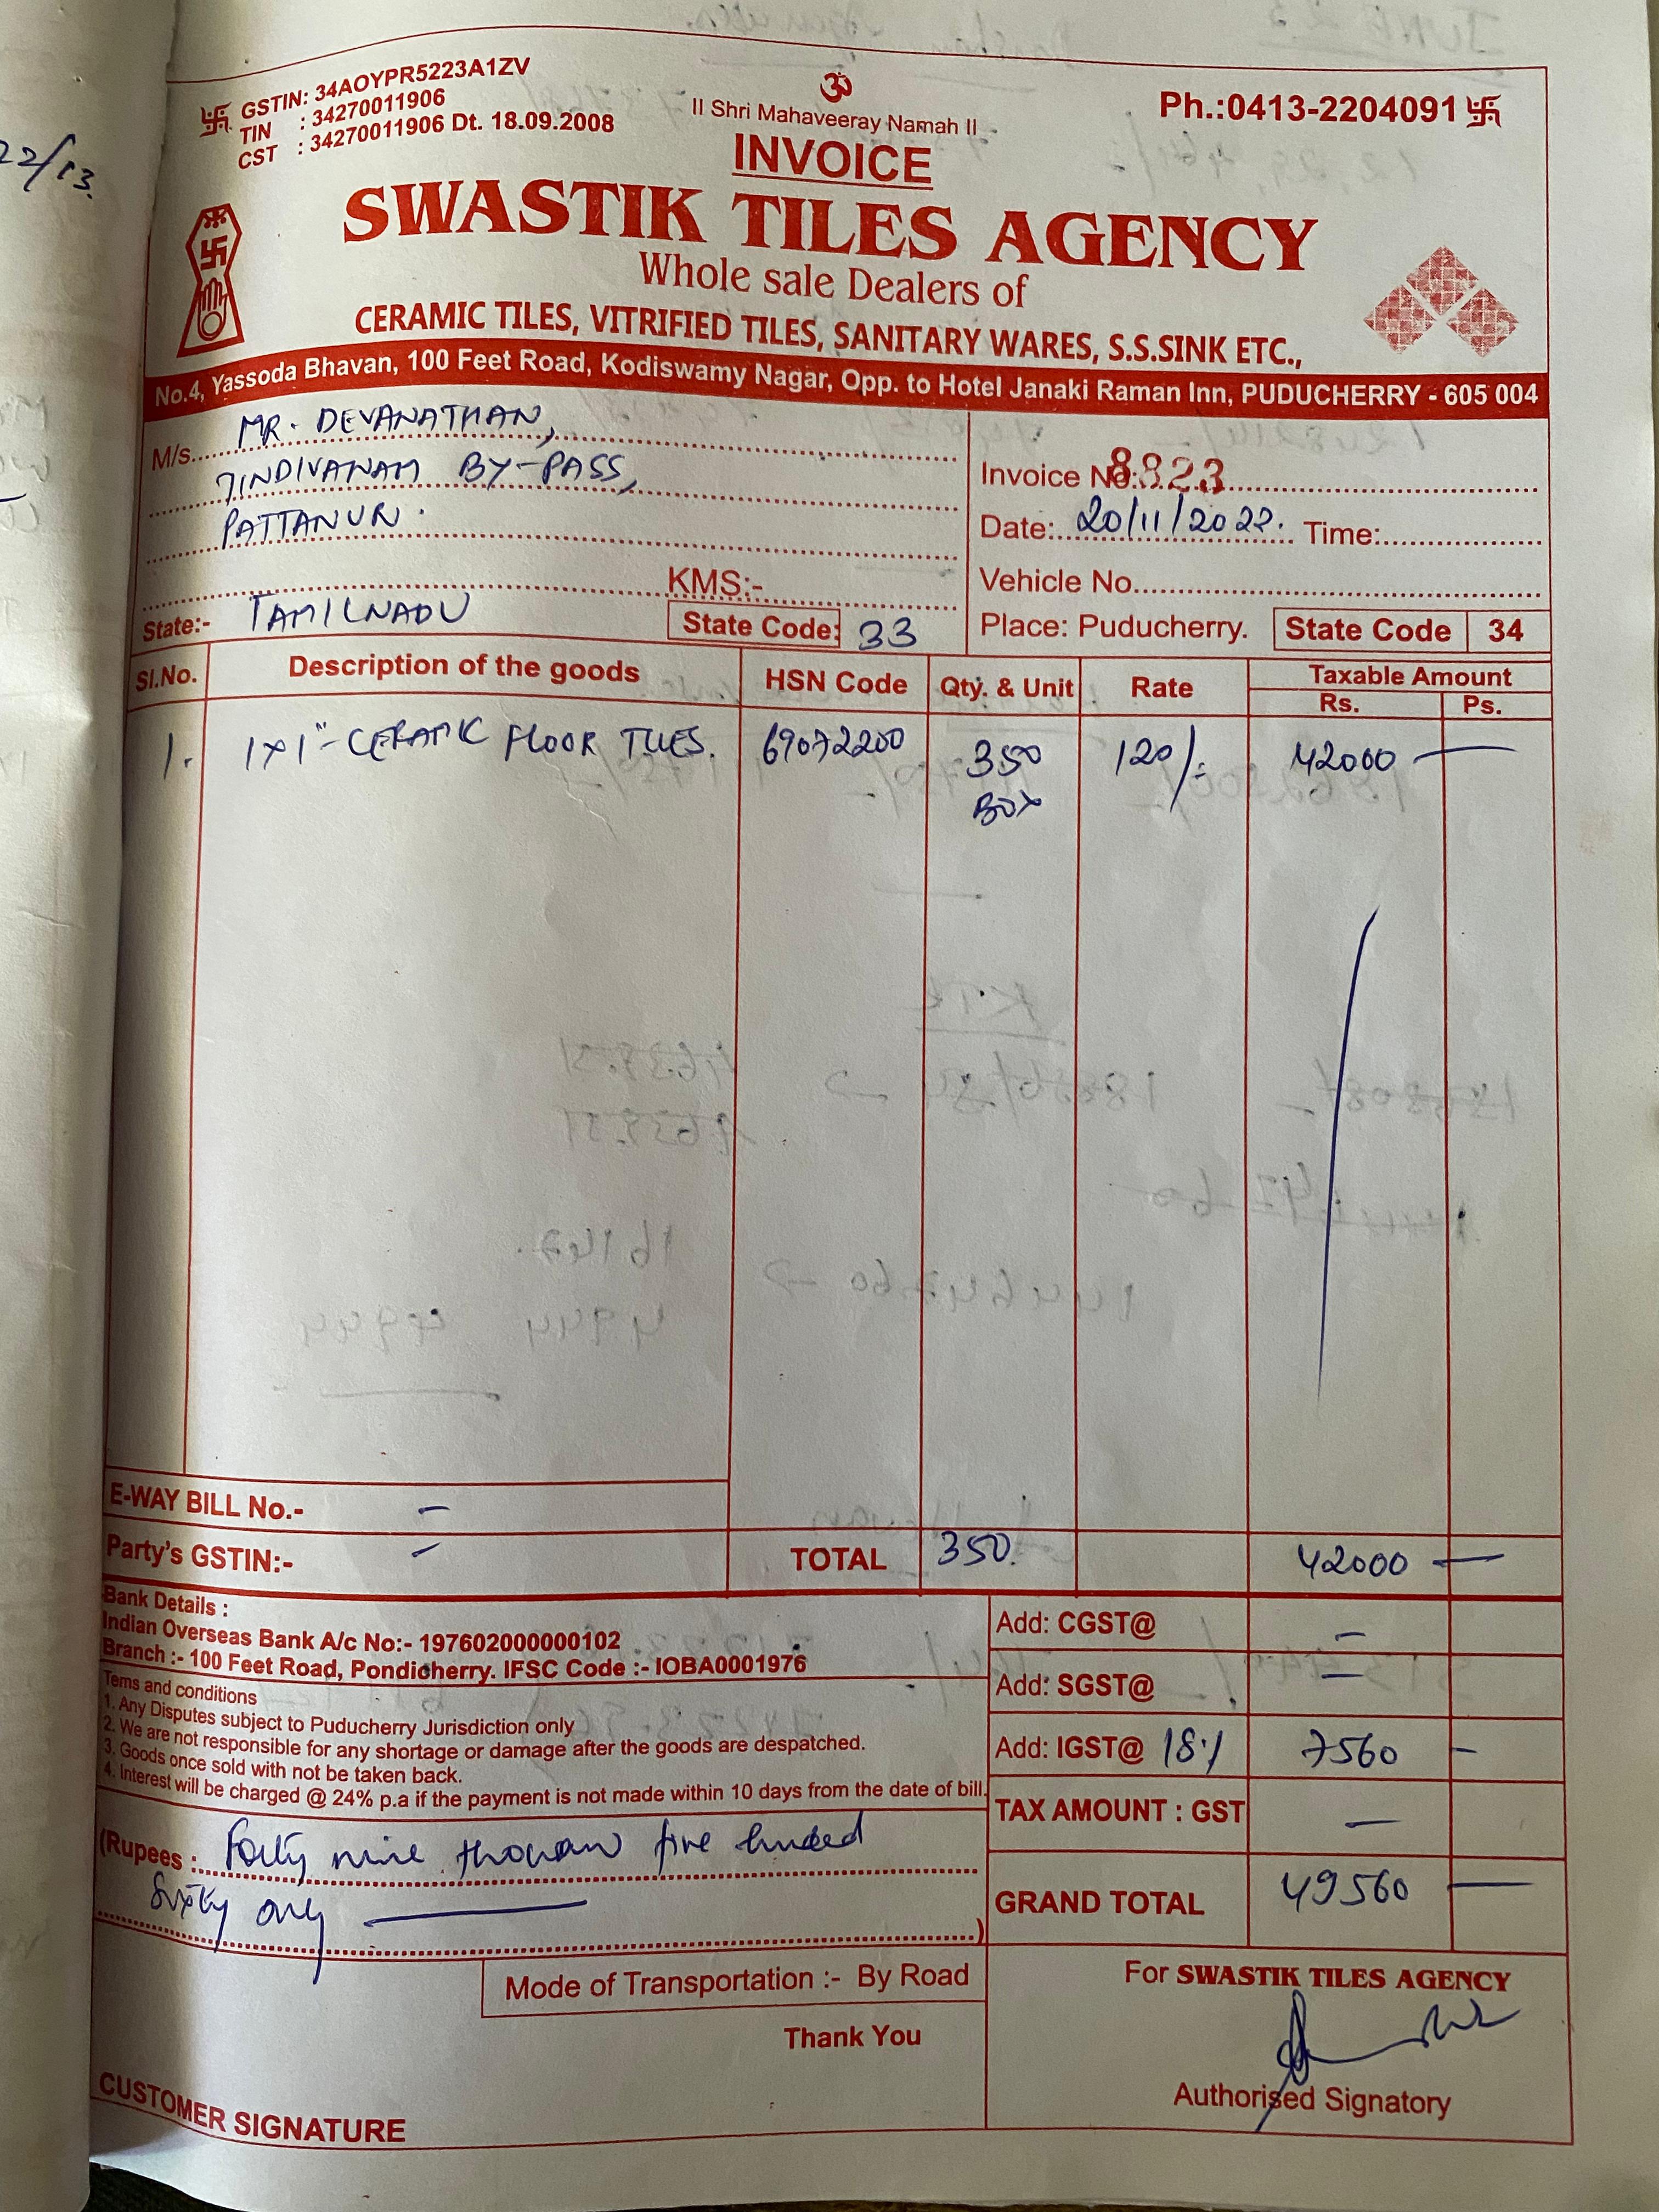 22/13.
GSTIN: 34AOYPR5223A1ZV
TIN : 34270011906
CST : 34270011906 Dt. 18.09.2008
ॐ
II Shri Mahaveeray Namah II
Ph.:0413-2204091
INVOICE
SWASTIK TILES AGENCY
Whole sale Dealers of
CERAMIC TILES, VITRIFIED TILES, SANITARY WARES, S.S.SINK ETC.,
No.4, Yassoda Bhavan, 100 Feet Road, Kodiswamy Nagar, Opp. to Hotel Janaki Raman Inn, PUDUCHERRY - 605 004
M/s. MR. DEVANATHAN,
TINDIVANAM BY-PASS,
PATTANUR.
KMS:-
State:- TAMILNADU State Code: 33
Invoice No: 8823
Date: 20/11/2022. Time:
Vehicle No.
Place: Puducherry. State Code 34
Sl.No. Description of the goods HSN Code Qty. & Unit Rate Taxable Amount
Rs. Ps.
1. 1x1"-CERAMIC FLOOR TILES. 69072200 350 120/- 42000 —
BOX
E-WAY BILL No.- –
Party's GSTIN:- – TOTAL 350. 42000 —
Bank Details :
Indian Overseas Bank A/c No:- 197602000000102
Branch :- 100 Feet Road, Pondicherry. IFSC Code :- IOBA0001976
Tems and conditions
1. Any Disputes subject to Puducherry Jurisdiction only
2. We are not responsible for any shortage or damage after the goods are despatched.
3. Goods once sold with not be taken back.
4. Interest will be charged @ 24% p.a if the payment is not made within 10 days from the date of bill.
Add: CGST@ –
Add: SGST@ –
Add: IGST@ 18% 7560 –
TAX AMOUNT : GST –
GRAND TOTAL 49560 —
(Rupees : Forty nine thousan five hunded
Sixty only —)
Mode of Transportation :- By Road
Thank You
CUSTOMER SIGNATURE
For SWASTIK TILES AGENCY
Authorised Signatory